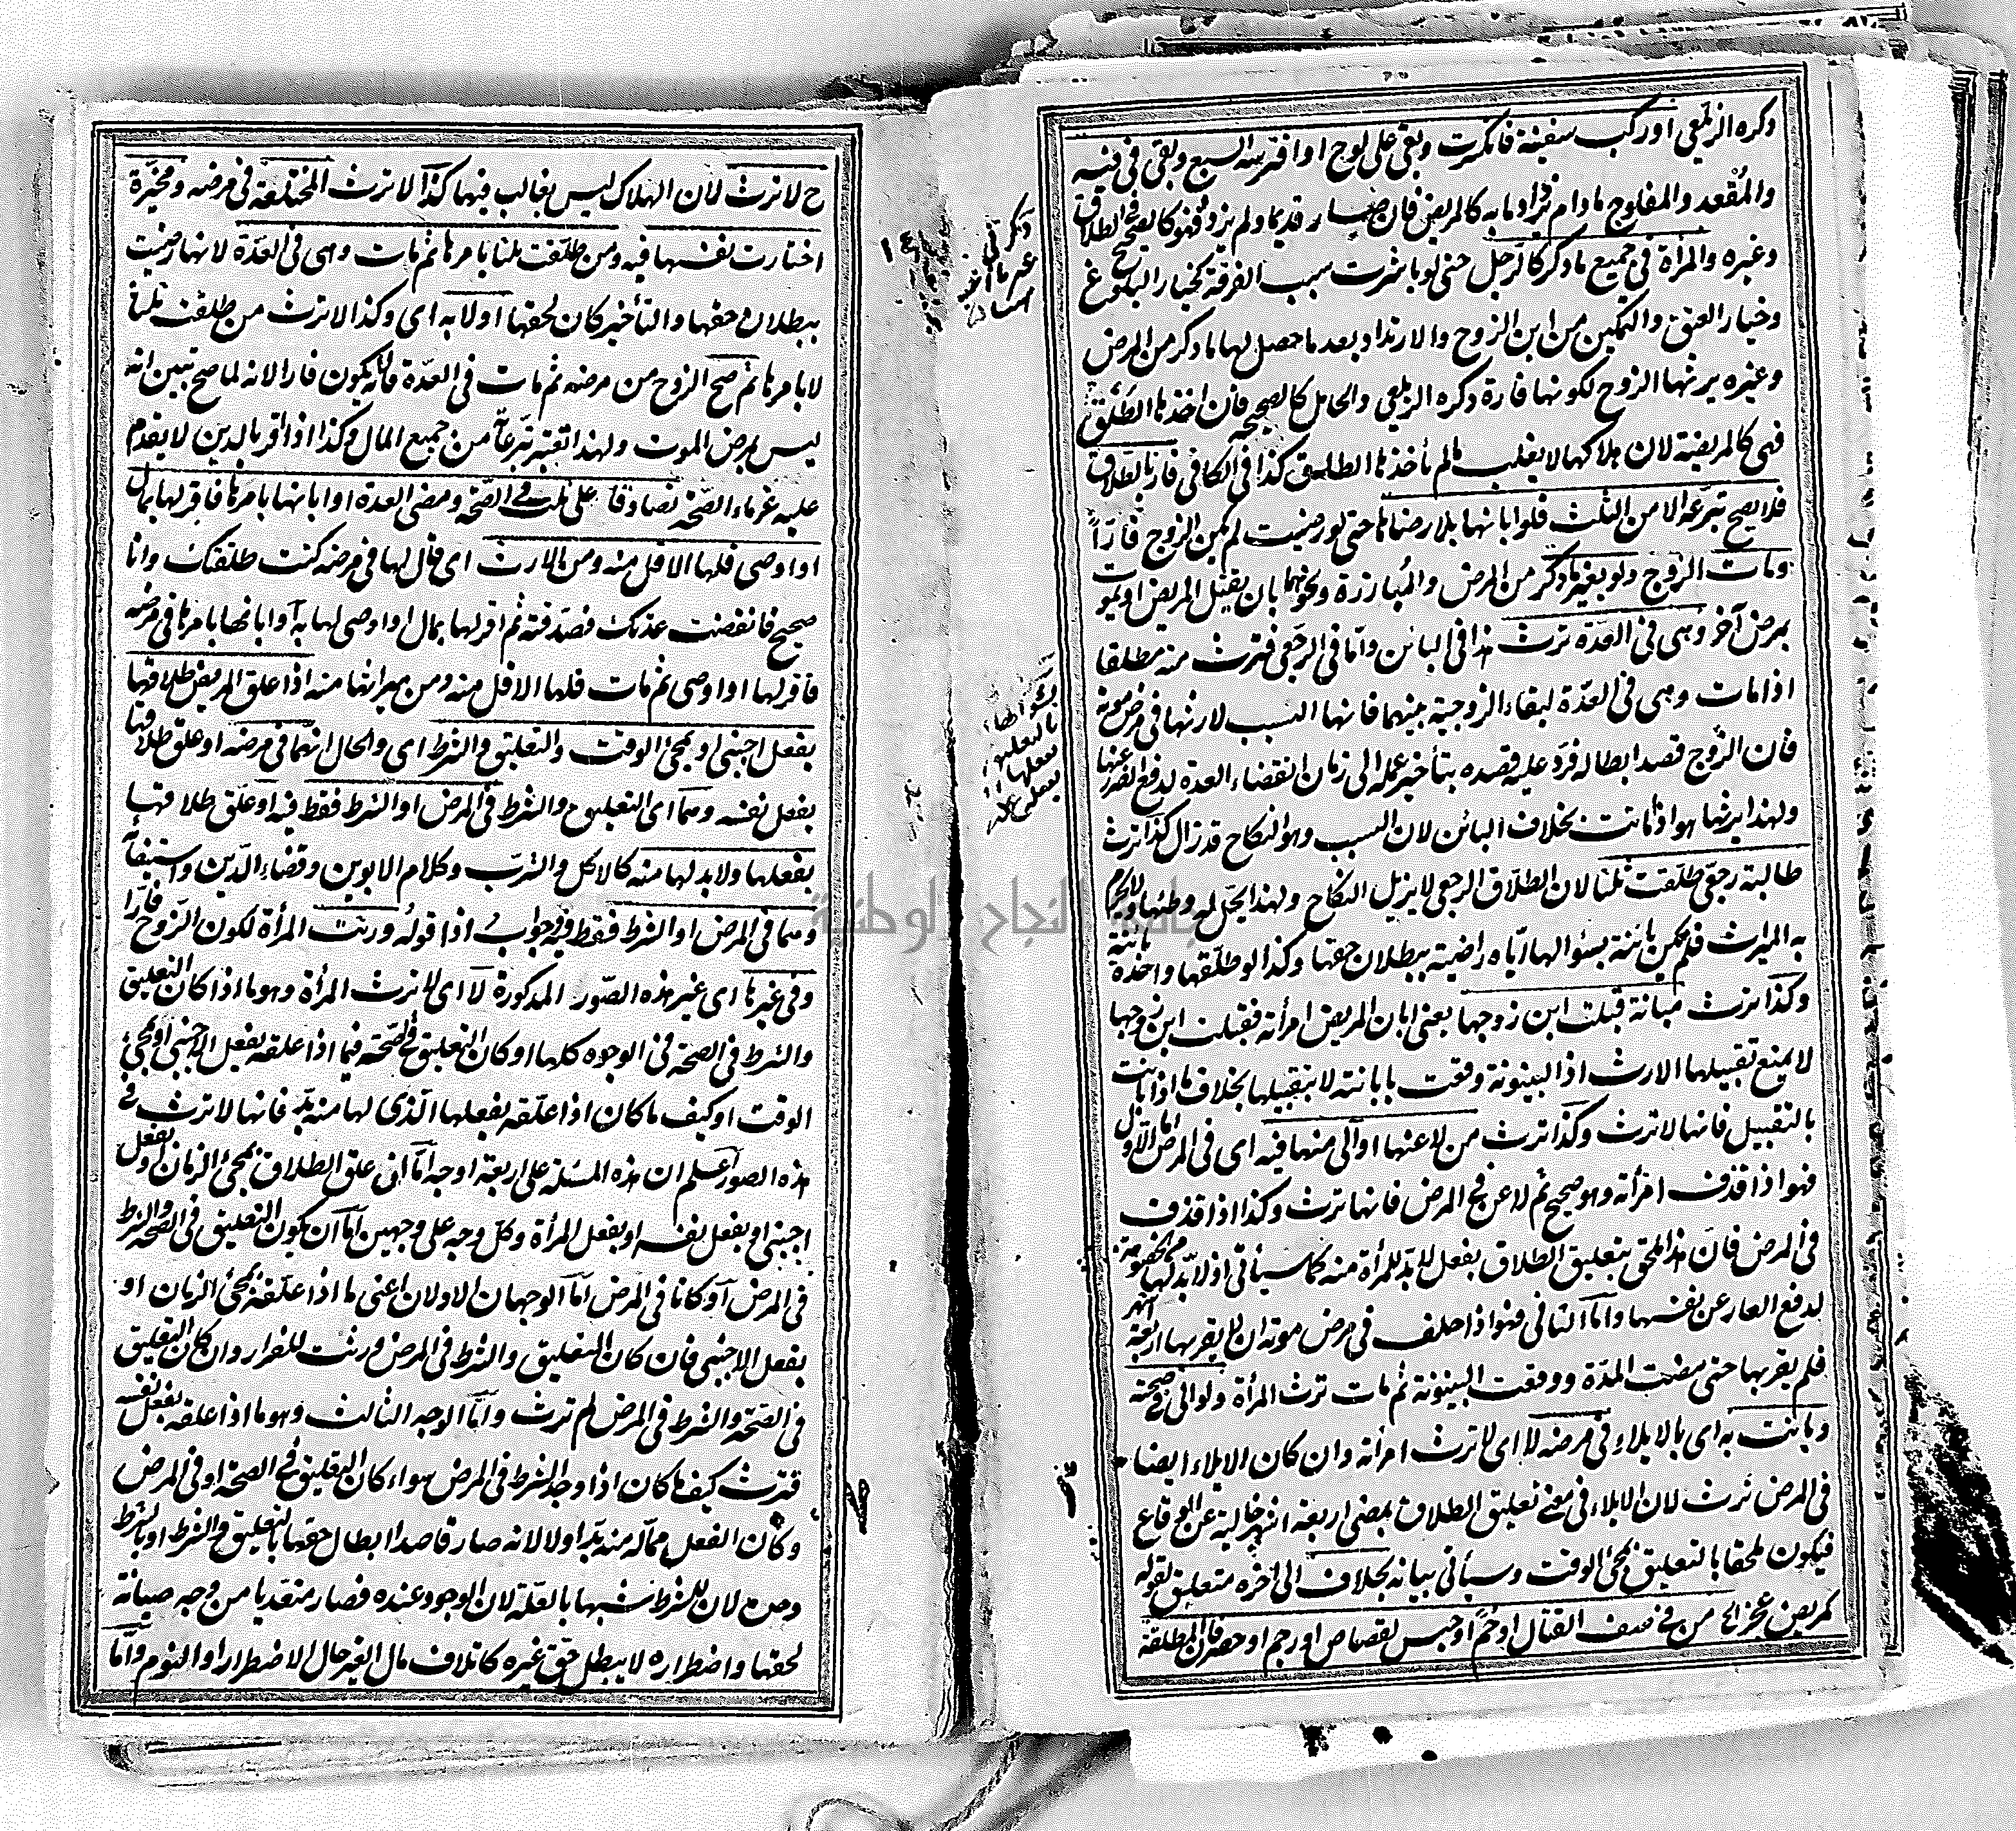 ذكره الزيلعي او ركب سفينة فانكسرت وبقى على لوح او افترسه السبع وبقى فى فيه
والمُقْعد والمفلوج مادام يزداد ما به كالمريض فان صار قديما ولم يزد فهو كالصحيح فى الطلاق
وغيره والمرأة فى جميع ما ذكر كالرجل حتى لو باشرت سبب الفرقة كخيار البلوغ
وخيار العتق والتمكين من ابن الزوج والارتداد بعد ما حصل لها ما ذكر من المرض
وغيره يرثها الزوج لكونها فارة ذكره الزيلعى والحامل كالصحيحة فان اخذها الطلق
فهى كالمريضة لان هلاكها لا يغلب ما لم يأخذها الطلق كذا فى الكافى فار بالطلاق
فلا يصح تبرعه الا من الثلث فلو ابانها بلا رضاها حتى لو رضيت لم يكن الزوج فارًّا
ومات الزوج ولو بغير ما ذكر من المرض والمبارزة ونحوهما بان يقتل المريض او يموت
بمرض آخر وهى فى العدة ترث هذا فى البائن واما فى الرجعى فترث منه مطلقا
اذا مات وهى فى العدة لبقاء الزوجية بينهما فانها السبب لارثها فى مرض موته
فان الزوج قصد ابطاله فرد عليه قصده بتأخير عمله الى زمان انقضاء العدة لدفع الضرر عنها
ولهذا يرثها هو اذا ماتت بخلاف البائن لان السبب وهو النكاح قد زال كذا ترث
طالبة رجعى طلقت ثلثا لان الطلاق الرجعى لا يزيل النكاح ولهذا يحل له وطئها ولا يحرم
به الميراث فلم تكن بائنة بسؤالها اياه راضية ببطلان حقها وكذا لو طلقها واحدة بائنة
وكذا ترث مبانة قبلت ابن زوجها يعنى ابان المريض امرأته فقبلت ابن زوجها
لا يمنع تقبيلها الارث اذ البينونة وقعت بابانته لا بتقبيلها بخلاف ما اذا بانت
بالتقبيل فانها لا ترث وكذا ترث من لاعنها او آلى منها فيه اى فى المرض اما الاول
فهو اذا قذف امرأته وهو صحيح ثم لاعن فى المرض فانها ترث وكذا اذا قذف
فى المرض فان هذا ملحق بتعليق الطلاق بفعل لا بد للمرأة منه كما سيأتى اذ لا بد لها من الخصومة
لدفع العار عن نفسها واما الثانى فهو اذا حلف فى مرض موته ان لا يقربها اربعة اشهر
فلم يقربها حتى مضت المدة ووقعت البينونة ثم مات ترث المرأة ولو آلى فى صحته
وبانت به اى بالايلاء فى مرضه لا اى لا ترث امرأته وان كان الايلاء ايضا
فى المرض ترث لان الايلاء فى معنى تعليق الطلاق بمضى اربعة اشهر خالية عن الوقاع
فيكون ملحقا بالتعليق بمجئ الوقت وسيأتى بيانه بخلاف الى آخره متعلق بقوله
كمريض عجز الخ من فى صف القتال او حُمّ او حبس لقصاص او رجم او حصر فان المطلقة
ح لا ترث لان الهلاك ليس بغالب فيها كذا لا ترث المختلعة فى مرضه ومخيرة
اختارت نفسها فيه ومن طلقت ثلثا بامرها ثم مات وهى فى العدة لانها رضيت
ببطلان حقها والتأخير كان لحقها او لا به اى وكذا لا ترث من طلقت ثلثا
لا بامرها ثم صح الزوج من مرضه ثم مات فى العدة فانه لا يكون فارا لانه لما صح تبين انه
ليس بمرض الموت ولهذا تعتبر تبرعاته من جميع المال وكذا اذا اقر بالدين لا يقدم
عليه غرماء الصحة تصادقا على ثلث فى الصحة ومضى العدة او ابانها بامرها فاقر لها بمال
او اوصى فلها الاقل منه ومن الارث اى قال لها فى مرضه كنت طلقتك وانا
صحيح فانقضت عدتك فصدقته ثم اقر لها بمال او اوصى لها به او ابانها بامرها فى مرضه
فاقر لها او اوصى ثم مات فلها الاقل منه ومن ميراثها منه اذا علق المريض طلاقها
بفعل اجنبى او بمجئ الوقت والتعليق والشرط اى والحال انهما فى مرضه او علق طلاقها
بفعل نفسه وهما اى التعليق والشرط فى المرض او الشرط فقط فيه او علق طلاقها
بفعلها ولا بد لها منه كالاكل والشرب وكلام الابوين وقضاء الدين واستيفائه
وهما فى المرض او الشرط فقط فيه جواب اذا قوله ورثت المرأة لكون الزوح فارا
وفى غيرها اى غير هذه الصور المذكورة لا اى لا ترث المرأة وهو ما اذا كان التعليق
والشرط فى الصحة فى الوجوه كلها او كان التعليق فى الصحة فيما اذا علقه بفعل الاجنبى او بمجئ
الوقت او كيف ما كان اذا علقه بفعلها الذى لها منه بد فانها لا ترث فى
هذه الصور اعلم ان هذه المسئلة على اربعة اوجه اما ان علق الطلاق بمجئ الزمان او بفعل
اجنبى او بفعل نفسه او بفعل المرأة وكل وجه على وجهين اما ان يكون التعليق فى الصحة والشرط
فى المرض او كانا فى المرض اما الوجهان الاولان اعنى ما اذا علقه بمجئ الزمان او
بفعل الاجنبى فان كان التعليق والشرط فى المرض ورثت للفرار وان كان التعليق
فى الصحة والشرط فى المرض لم ترث واما الوجه الثالث وهو ما اذا علقه بفعل نفسه
فترث كيف ما كان اذا وجد الشرط فى المرض سواء كان التعليق فى الصحة او فى المرض
وكان الفعل مما له منه بد او لا لانه صار قاصدا ابطال حقها بالتعليق والشرط او بالشرط
وحده لان للشرط شبها بالعلة لان الوجود عنده فصار متعديا من وجه صيانة
لحقها واضطراره لا يبطل حق غيره كاتلاف مال الغير حال الاضطرار او النوم واما
جامعة النجاح الوطنية